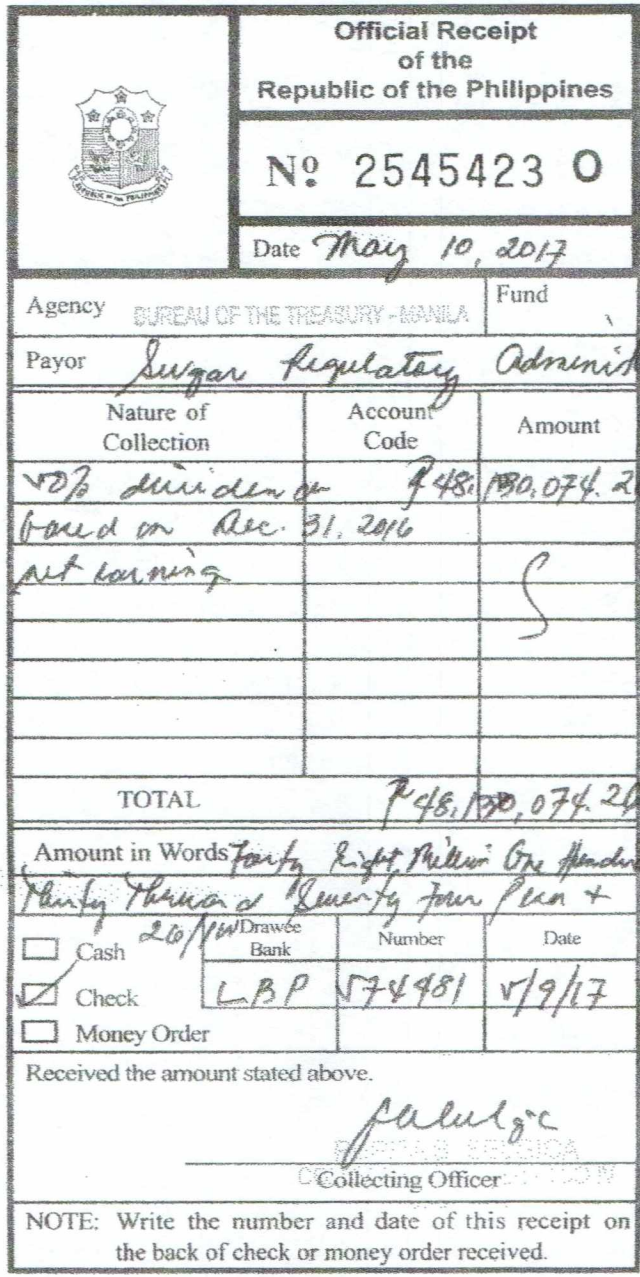 Official Receipt
of the
Republic of the Philippines
REPUBLIC OF THE PHILIPPINES
Nº 2545423 O
Date May 10, 2017
Agency BUREAU OF THE TREASURY - MANILA
Fund
Payor Sugar Regulatory Adminis
Nature of Collection Account Code Amount
50% dividend ₱48,130,074.2
based on Dec. 31, 2016
net earning
TOTAL ₱48,130,074.26
Amount in Words Forty Eight Million One Hundre
Thirty Thousand Seventy Four Pesos +
26/100
Cash Drawee Bank Number Date
Check LBP 574481 5/9/17
Money Order
Received the amount stated above.
Collecting Officer
NOTE: Write the number and date of this receipt on
the back of check or money order received.